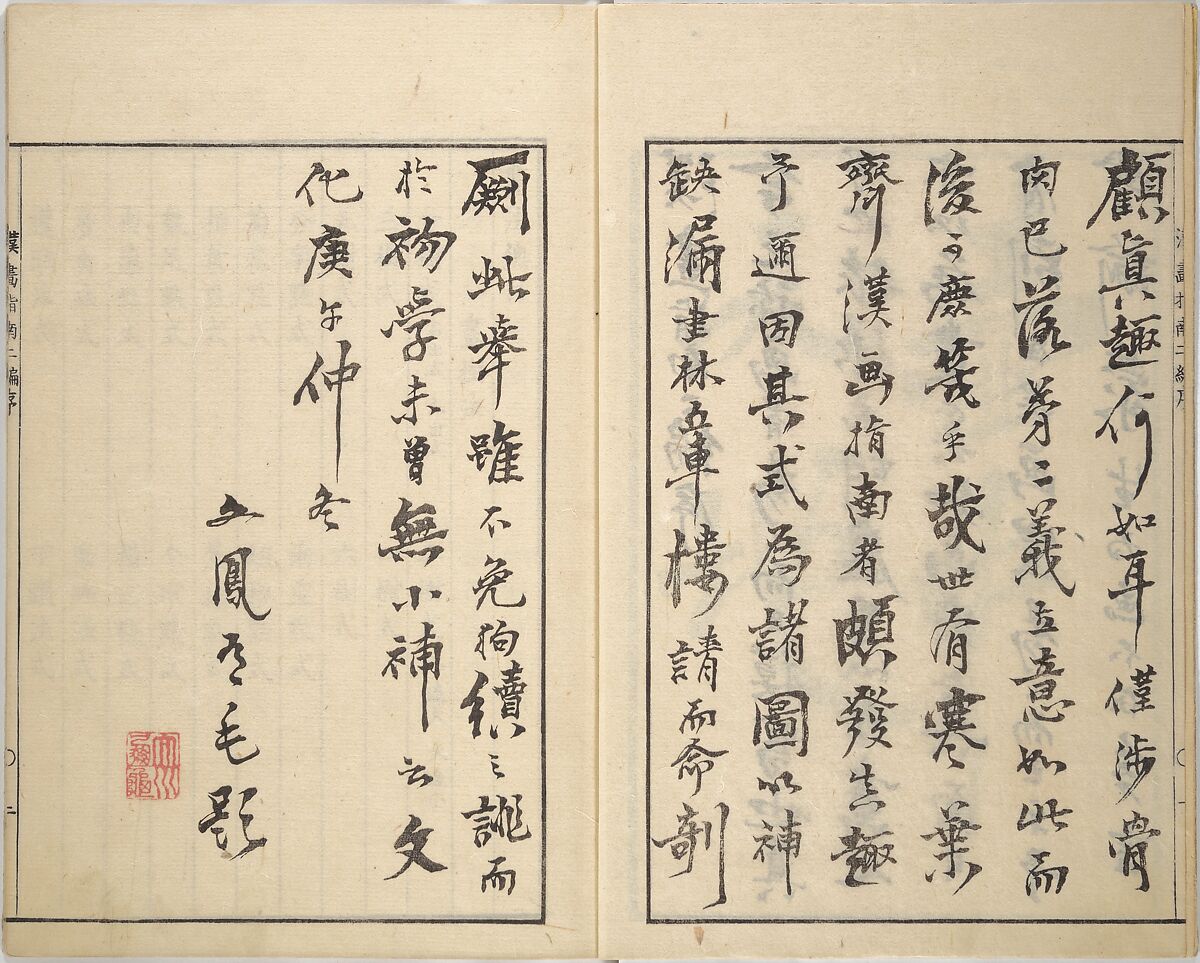 顧真趣何如耳僅渉骨
肉已落第二義立意如此而
後可庶幾乎哉世有寒葉
齋漢画指南者頗發真趣
予適因其式為諸圖以補
缺漏書林五車楼請而命剞
劂此挙雖不免狗續之誚而
於初学未曾無小補云文
化庚午仲冬
文鳳馬毛題
漢畫指南二編序
二
漢畫指南二編序
一